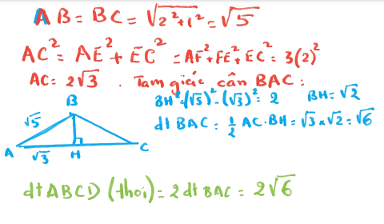 AB = BC = √2²+1² = √5
AC² = AE² + EC² = AF² + FE² + EC² = 3(2)²
AC = 2√3 . Tam giác cân BAC :
BH² = (√5)² - (√3)² = 2 BH = √2
dt BAC = 1/2 AC.BH = √3 x √2 = √6
B
√5
A √3 H C
dt ABCD (thoi) = 2 dt BAC = 2√6